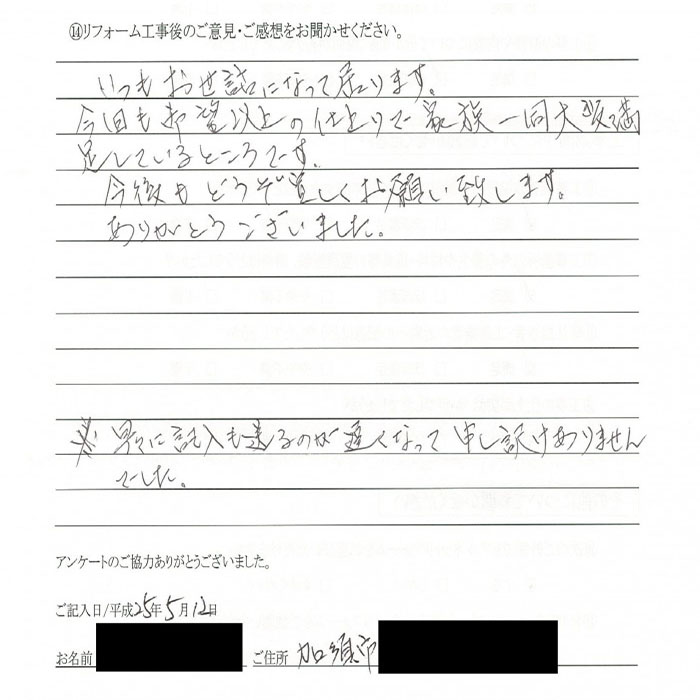 ⑭リフォーム工事後のご意見・ご感想をお聞かせください。
いつもお世話になって居ります。
今回も希望以上の仕上りで家族一同大変満
足しているところです。
今後もどうぞ宜しくお願い致します。
ありがとうございました。
※早々に記入も送るのが遅くなって申し訳けありません
でした。
アンケートのご協力ありがとうございました。
ご記入日/平成25年5月12日
お名前 ご住所 加須市